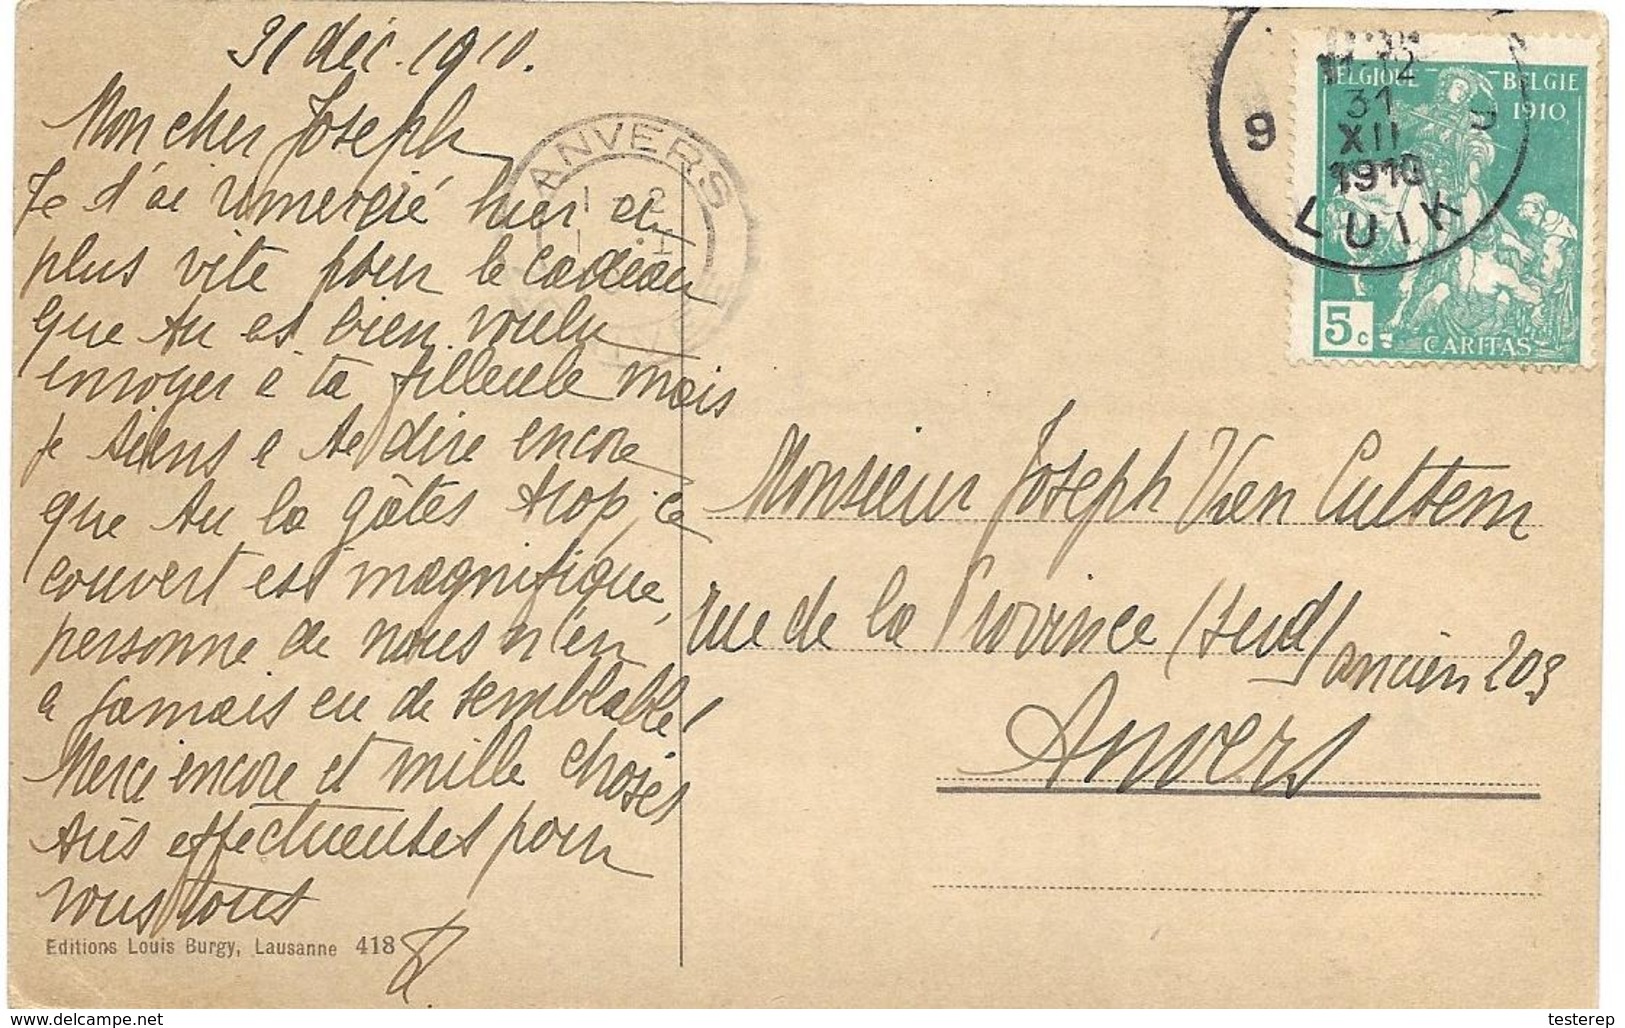 31 déc. 1910.
Mon cher Joseph
Je t'ai remercié hier au
plus vite pour le cadeau
que tu as bien voulu
envoyer à ta filleule mais
je tiens à te dire encore
que tu la gâtes trop, ce
couvert est magnifique,
personne de nous n'en
a jamais eu de semblable!
Merci encore et mille choses
très affectueuses pour
vous tous
Editions Louis Burgy, Lausanne 418
ANVERS
1 2
9
31
XII
1910
LUIK
BELGIQUE - BELGIE
1910
5c
CARITAS
Monsieur Joseph Van Cuttsem
rue de la Province (Sud) ancien 203
Anvers
www.delcampe.net
testerep